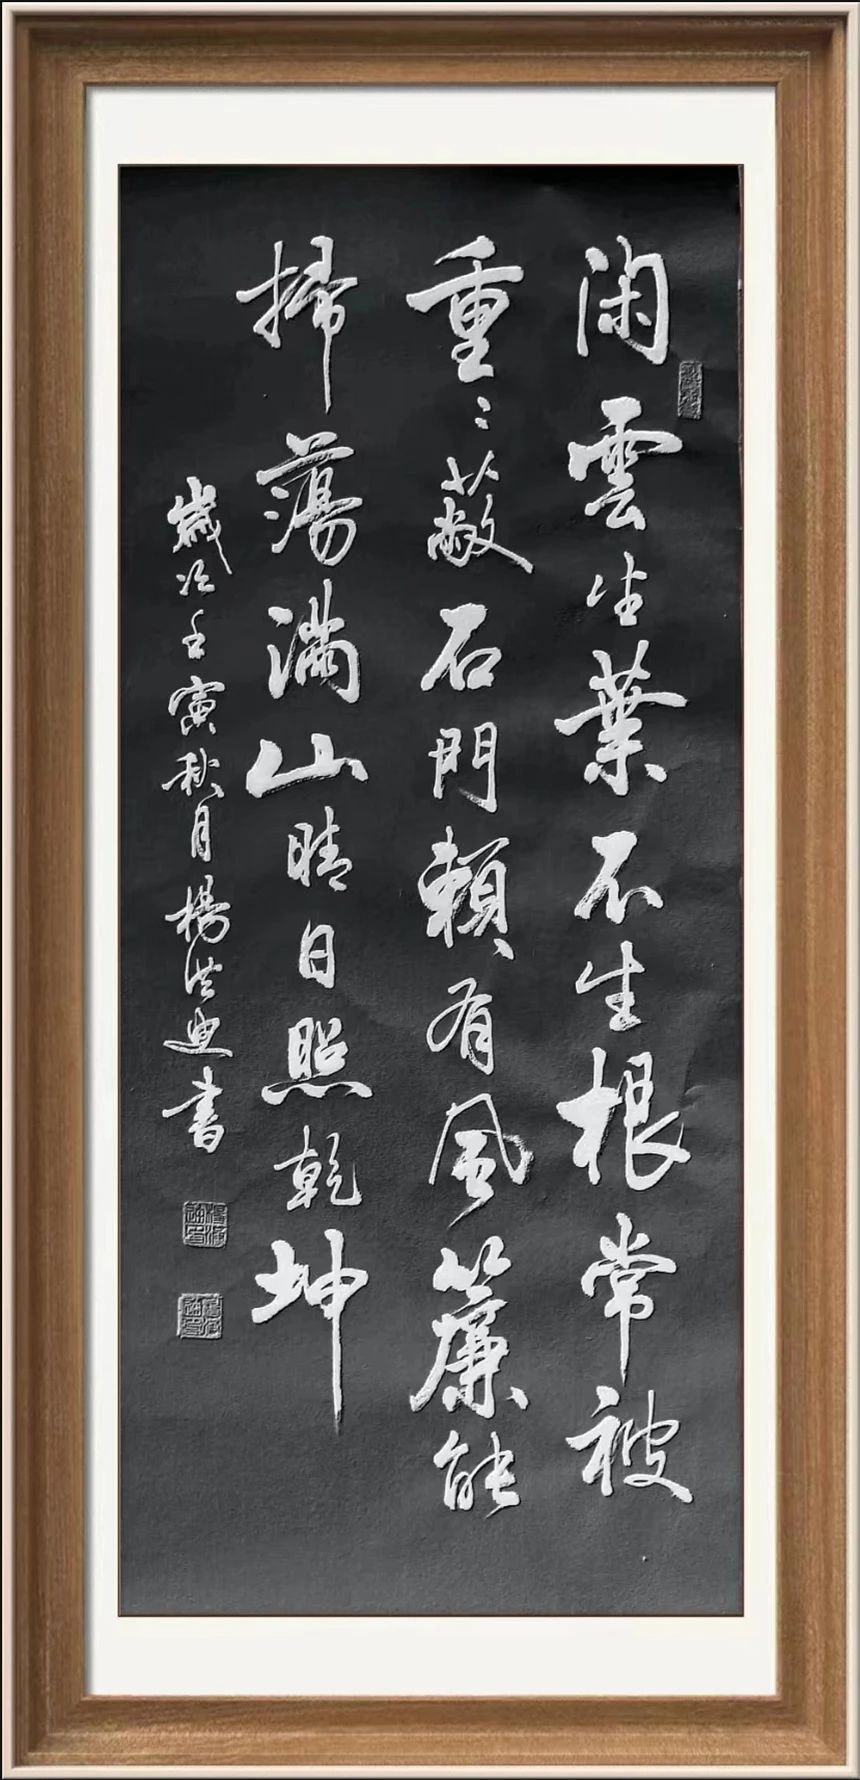 闲雲生葉不生根常被
重々蔽石門賴有風簾能
掃蕩滿山晴日照乾坤
歲次壬寅秋月楊洪迪書